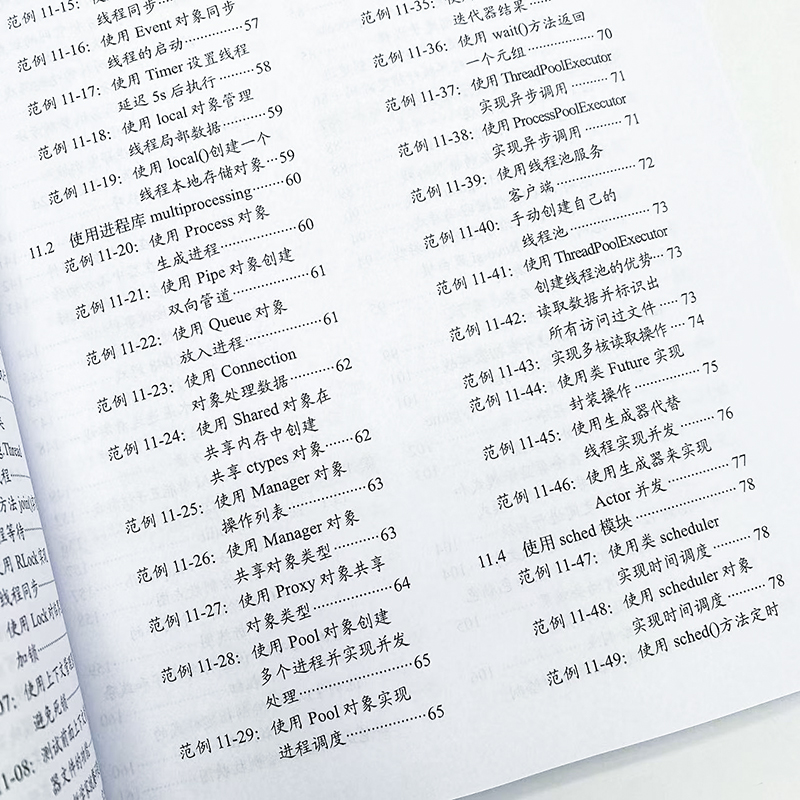 范例 11-15：
线程同步
57
范例 11-16：使用 Event 对象同步
线程的启动············57
范例 11-17：使用 Timer 设置线程
延迟 5s 后执行·········58
范例 11-18：使用 local 对象管理
线程局部数据·········59
范例 11-19：使用 local()创建一个
线程本地存储对象···59
11.2 使用进程库 multiprocessing········60
范例 11-20：使用 Process 对象
生成进程···············60
范例 11-21：使用 Pipe 对象创建
双向管道···············61
范例 11-22：使用 Queue 对象
放入进程···············61
范例 11-23：使用 Connection
对象处理数据·········62
范例 11-24：使用 Shared 对象在
共享内存中创建
共享 ctypes 对象·······62
范例 11-25：使用 Manager 对象
操作列表···············63
范例 11-26：使用 Manager 对象
共享对象类型·········63
范例 11-27：使用 Proxy 对象共享
对象类型···············64
范例 11-28：使用 Pool 对象创建
多个进程并实现并发
处理·····················65
范例 11-29：使用 Pool 对象实现
进程调度···············65
范例 11-35：使用
迭代器结果············70
范例 11-36：使用 wait()方法返回
一个元组···············70
范例 11-37：使用 ThreadPoolExecutor
实现异步调用·········71
范例 11-38：使用 ProcessPoolExecutor
实现异步调用·········71
范例 11-39：使用线程池服务
客户端··················72
范例 11-40：手动创建自己的
线程池··················73
范例 11-41：使用 ThreadPoolExecutor
创建线程池的优势···73
范例 11-42：读取数据并标识出
所有访问过文件······73
范例 11-43：实现多核读取操作····74
范例 11-44：使用类 Future 实现
封装操作···············75
范例 11-45：使用生成器代替
线程实现并发·········76
范例 11-46：使用生成器来实现
Actor 并发············77
11.4 使用 sched 模块·····················78
范例 11-47：使用类 scheduler
实现时间调度·········78
范例 11-48：使用 scheduler 对象
实现时间调度·········78
范例 11-49：使用 sched()方法定时
Thread
线程
方法 join()
程等待
用 RLock 实现
线程同步
使用 Lock 对
加锁
07：使用上下文管
避免死锁
1-08：测试前面上下
器文件的